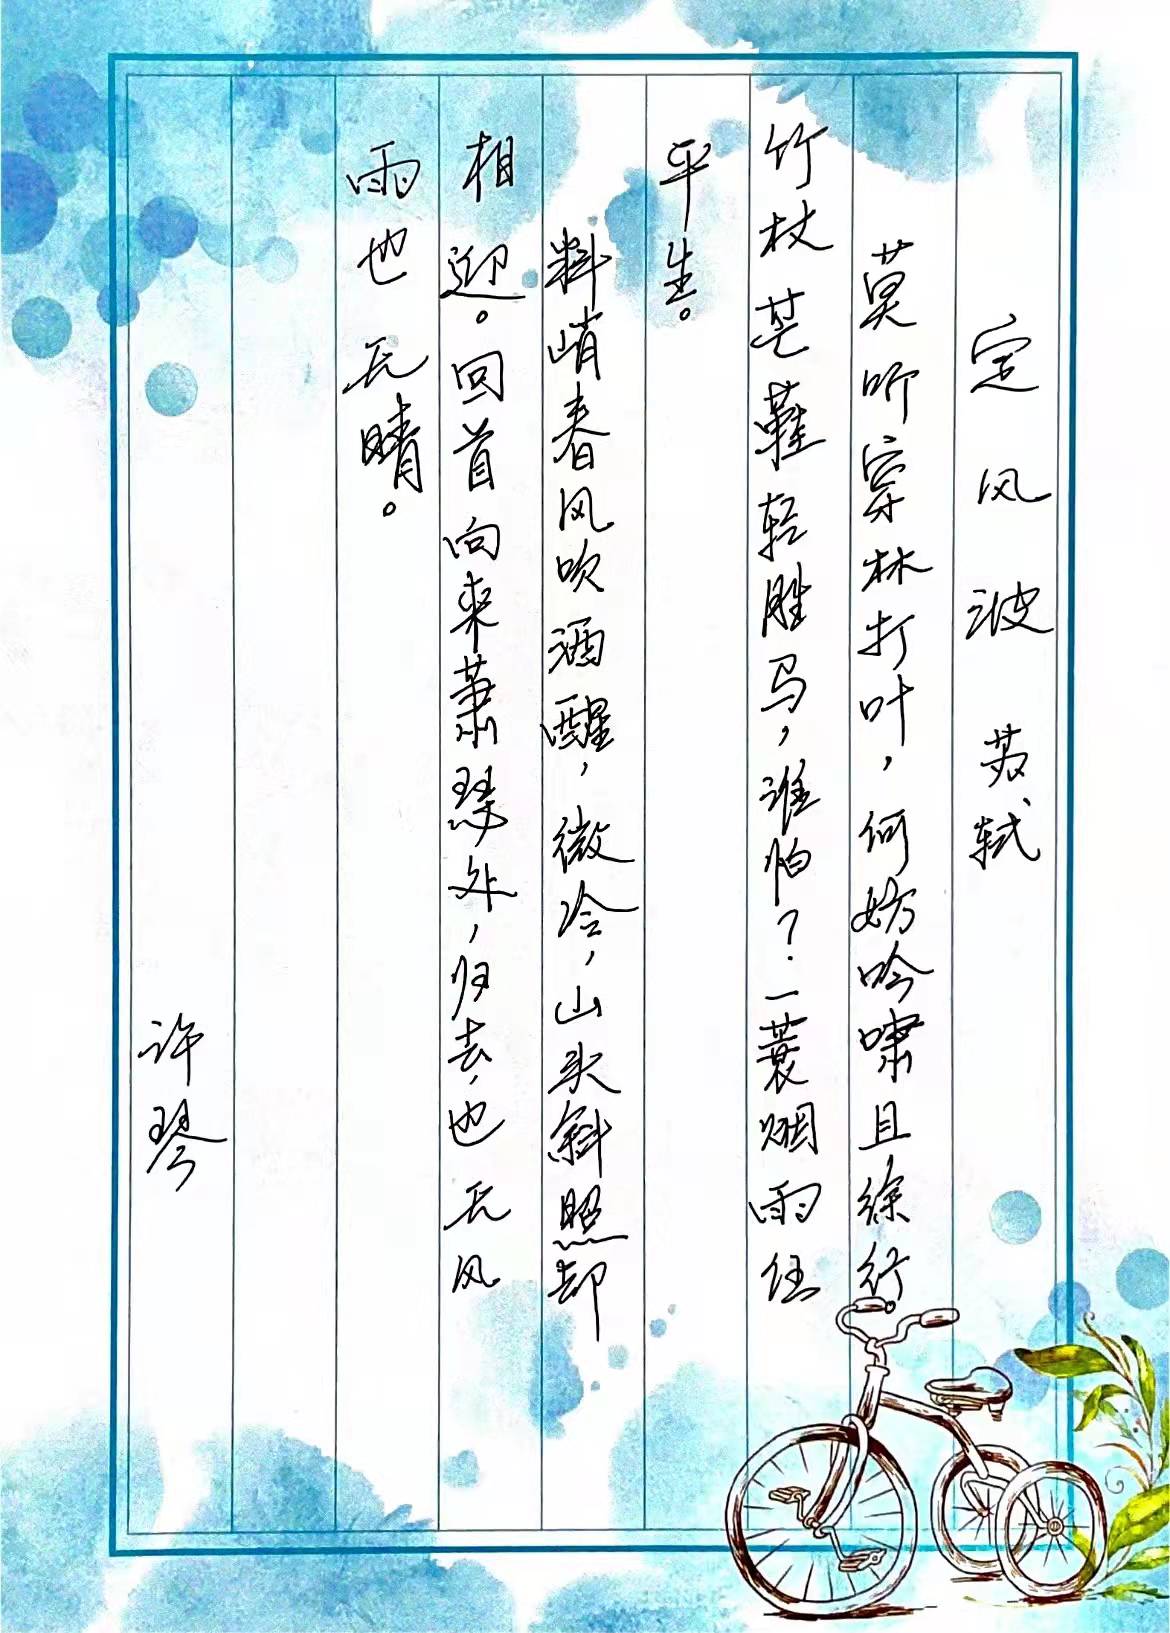 定风波 苏轼
莫听穿林打叶，何妨吟啸且徐行
竹杖芒鞋轻胜马，谁怕？一蓑烟雨任
平生。
料峭春风吹酒醒，微冷，山头斜照却
相迎。回首向来萧瑟处，归去，也无风
雨也无晴。
许琴